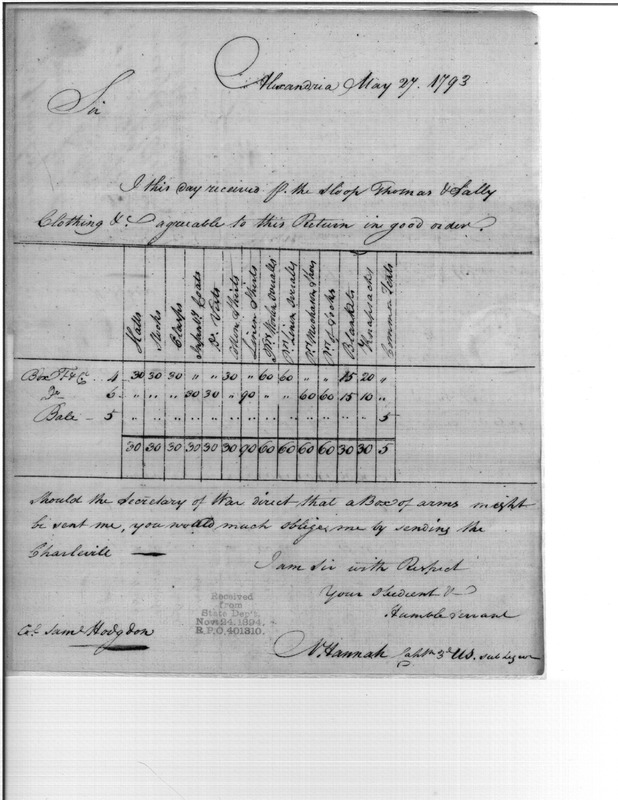 Alexandria May 27. 1793
Sir
I this day received p. the Sloop Thomas & Sally
Clothing &c. agreeable to this Return in good order.
Hatts Stocks Clasps Coats Do Vests Shirts Linen Shirts Prs Wooln Overalls Prs Linen Overalls Prs Shoes Prs Socks Blankets Knapsacks Common Tents
Box 4 30 30 30 " " 30 " 60 60 " " 15 20 "
Do 6 " " " 30 30 " 90 " " 60 60 15 10 "
Bale 5 " " " " " " " " " " " " " 5
30 30 30 30 30 30 90 60 60 60 60 30 30 5
Should the Secretary of War direct that a Box of arms might
be sent me, you would much oblige me by sending the
Charleville —
I am Sir with Respect
Your Obedient &
Humble Servant
Received
from
State Dep't.
Nov. 24, 1894,
R.P.O. 401310.
Col. Saml Hodgdon
Ns Hannah Captn 3d US. Sub Legion